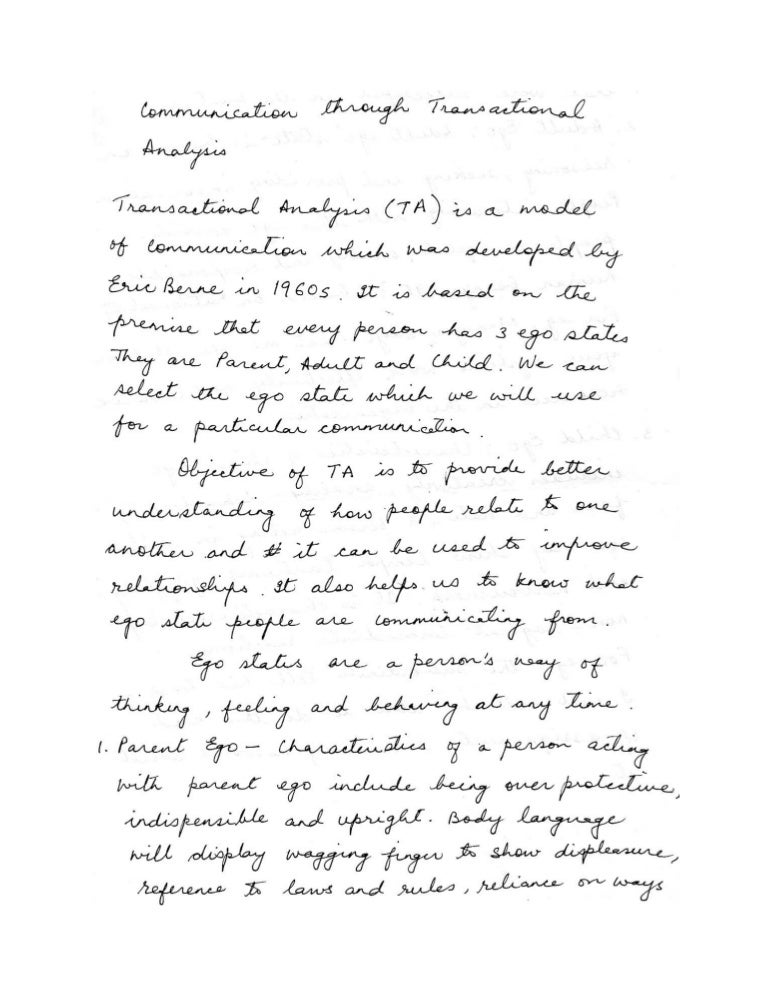 Communication through Transactional
Analysis
Transactional Analysis (TA) is a model
of communication which was developed by
Eric Berne in 1960s. It is based on the
premise that every person has 3 ego states
They are Parent, Adult and Child. We can
select the ego state which we will use
for a particular communication.
Objective of TA is to provide better
understanding of how people relate to one
another and it can be used to improve
relationships. It also helps us to know what
ego state people are communicating from.
Ego states are a person's way of
thinking, feeling and behaving at any time.
1. Parent Ego - Characteristics of a person acting
with parent ego include being over protective,
indispensible and upright. Body language
will display wagging finger to show displeasure,
reference to laws and rules, reliance on ways